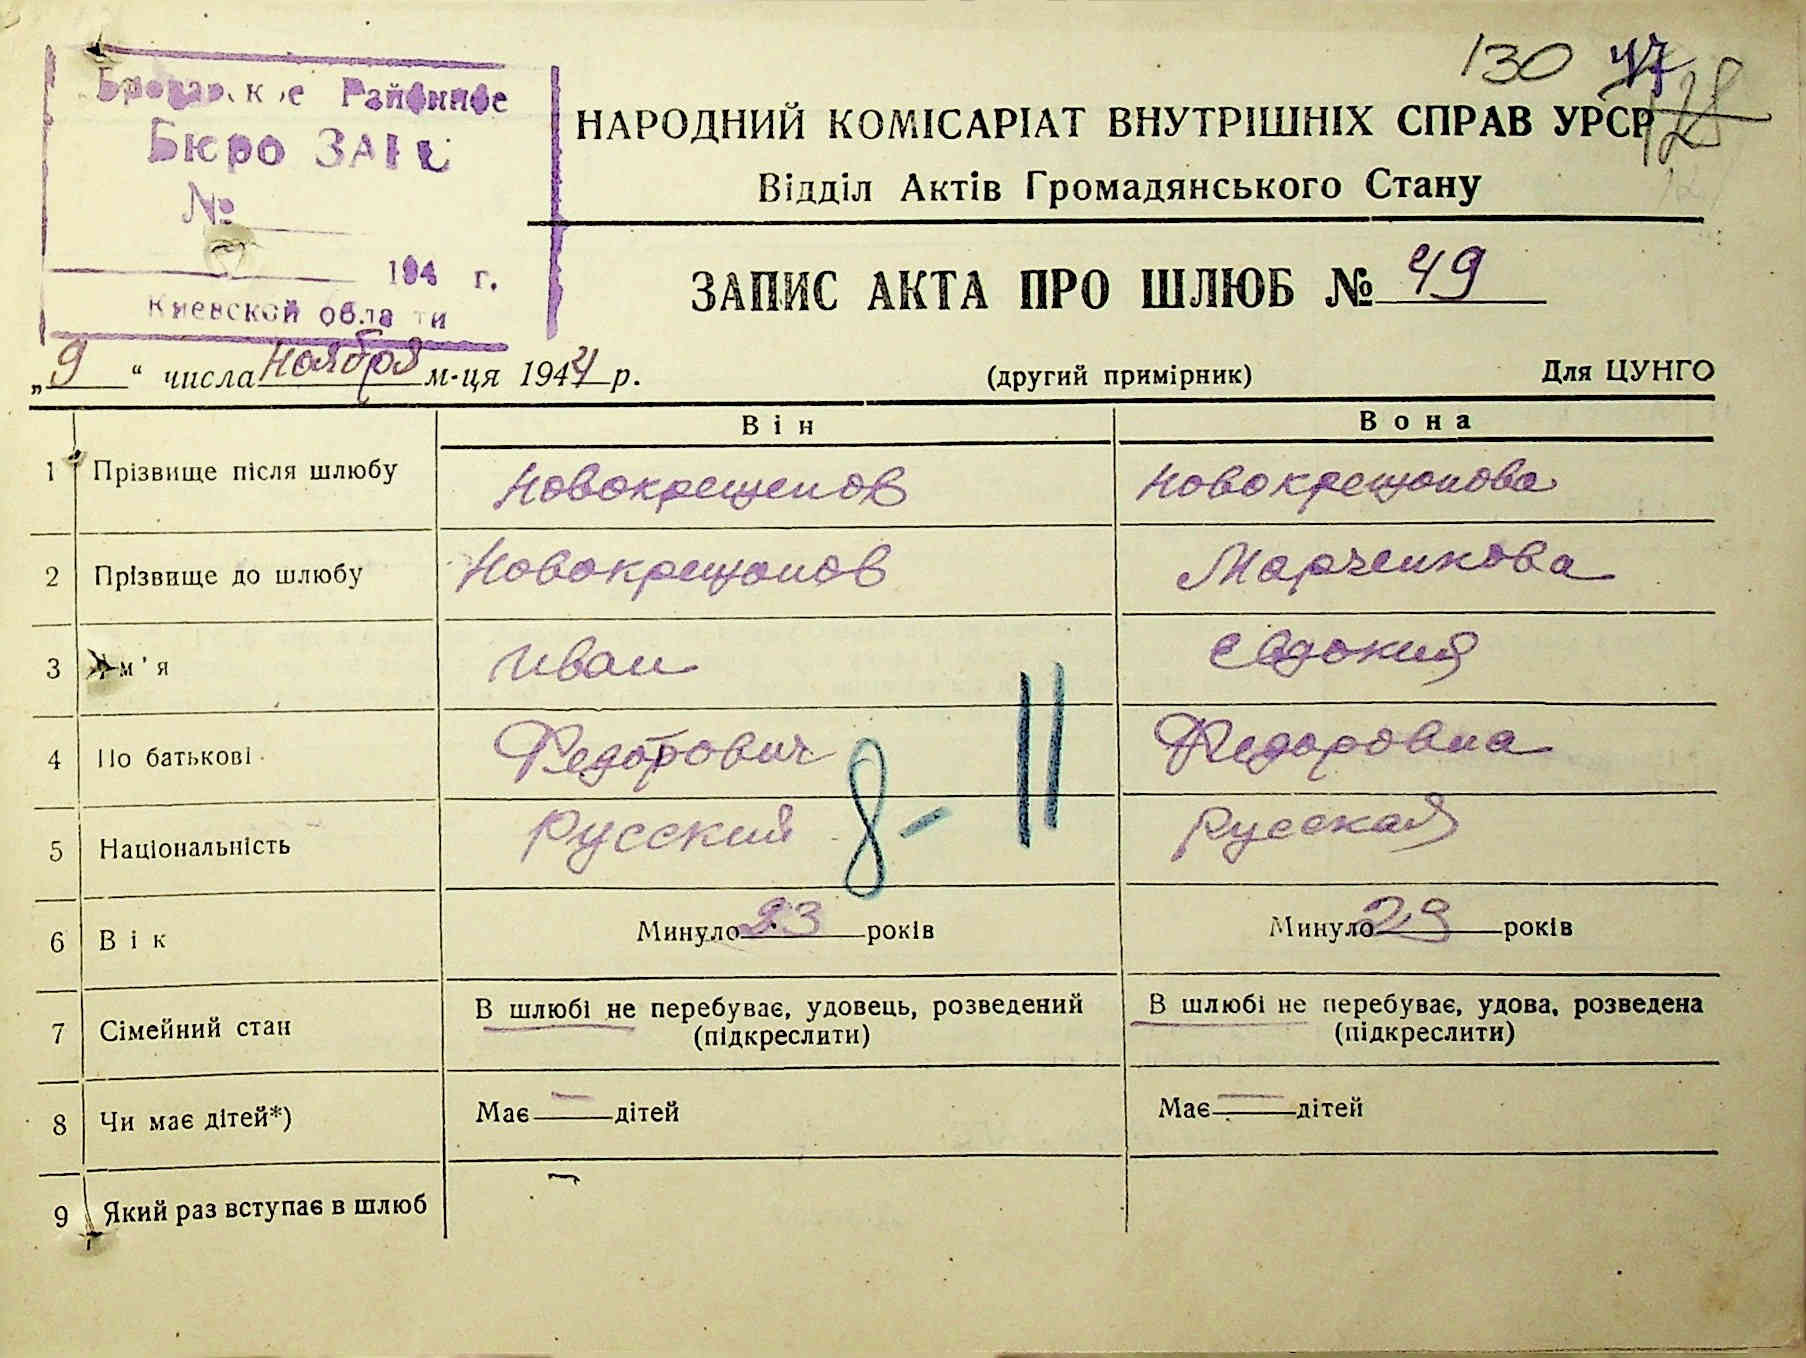 130 47
128
Броварское Районное
Бюро ЗАГС
№
194 г.
Киевской области
НАРОДНИЙ КОМІСАРІАТ ВНУТРІШНІХ СПРАВ УРСР
Відділ Актів Громадянського Стану
ЗАПИС АКТА ПРО ШЛЮБ № 49
„9“ числа ноября м-ця 1944 р. (другий примірник) Для ЦУНГО
Він Вона
1 Прізвище після шлюбу Новокрещенов Новокрещонова
2 Прізвище до шлюбу Новокрещонов Марченкова
3 Ім'я Иван Евдокия
4 По батькові Федорович Федоровна
5 Національність Русский Русская
8-11
6 Вік Минуло 23 років Минуло 29 років
7 Сімейний стан В шлюбі не перебуває, удовець, розведений В шлюбі не перебуває, удова, розведена
(підкреслити) (підкреслити)
8 Чи має дітей*) Має — дітей Має — дітей
9 Який раз вступає в шлюб